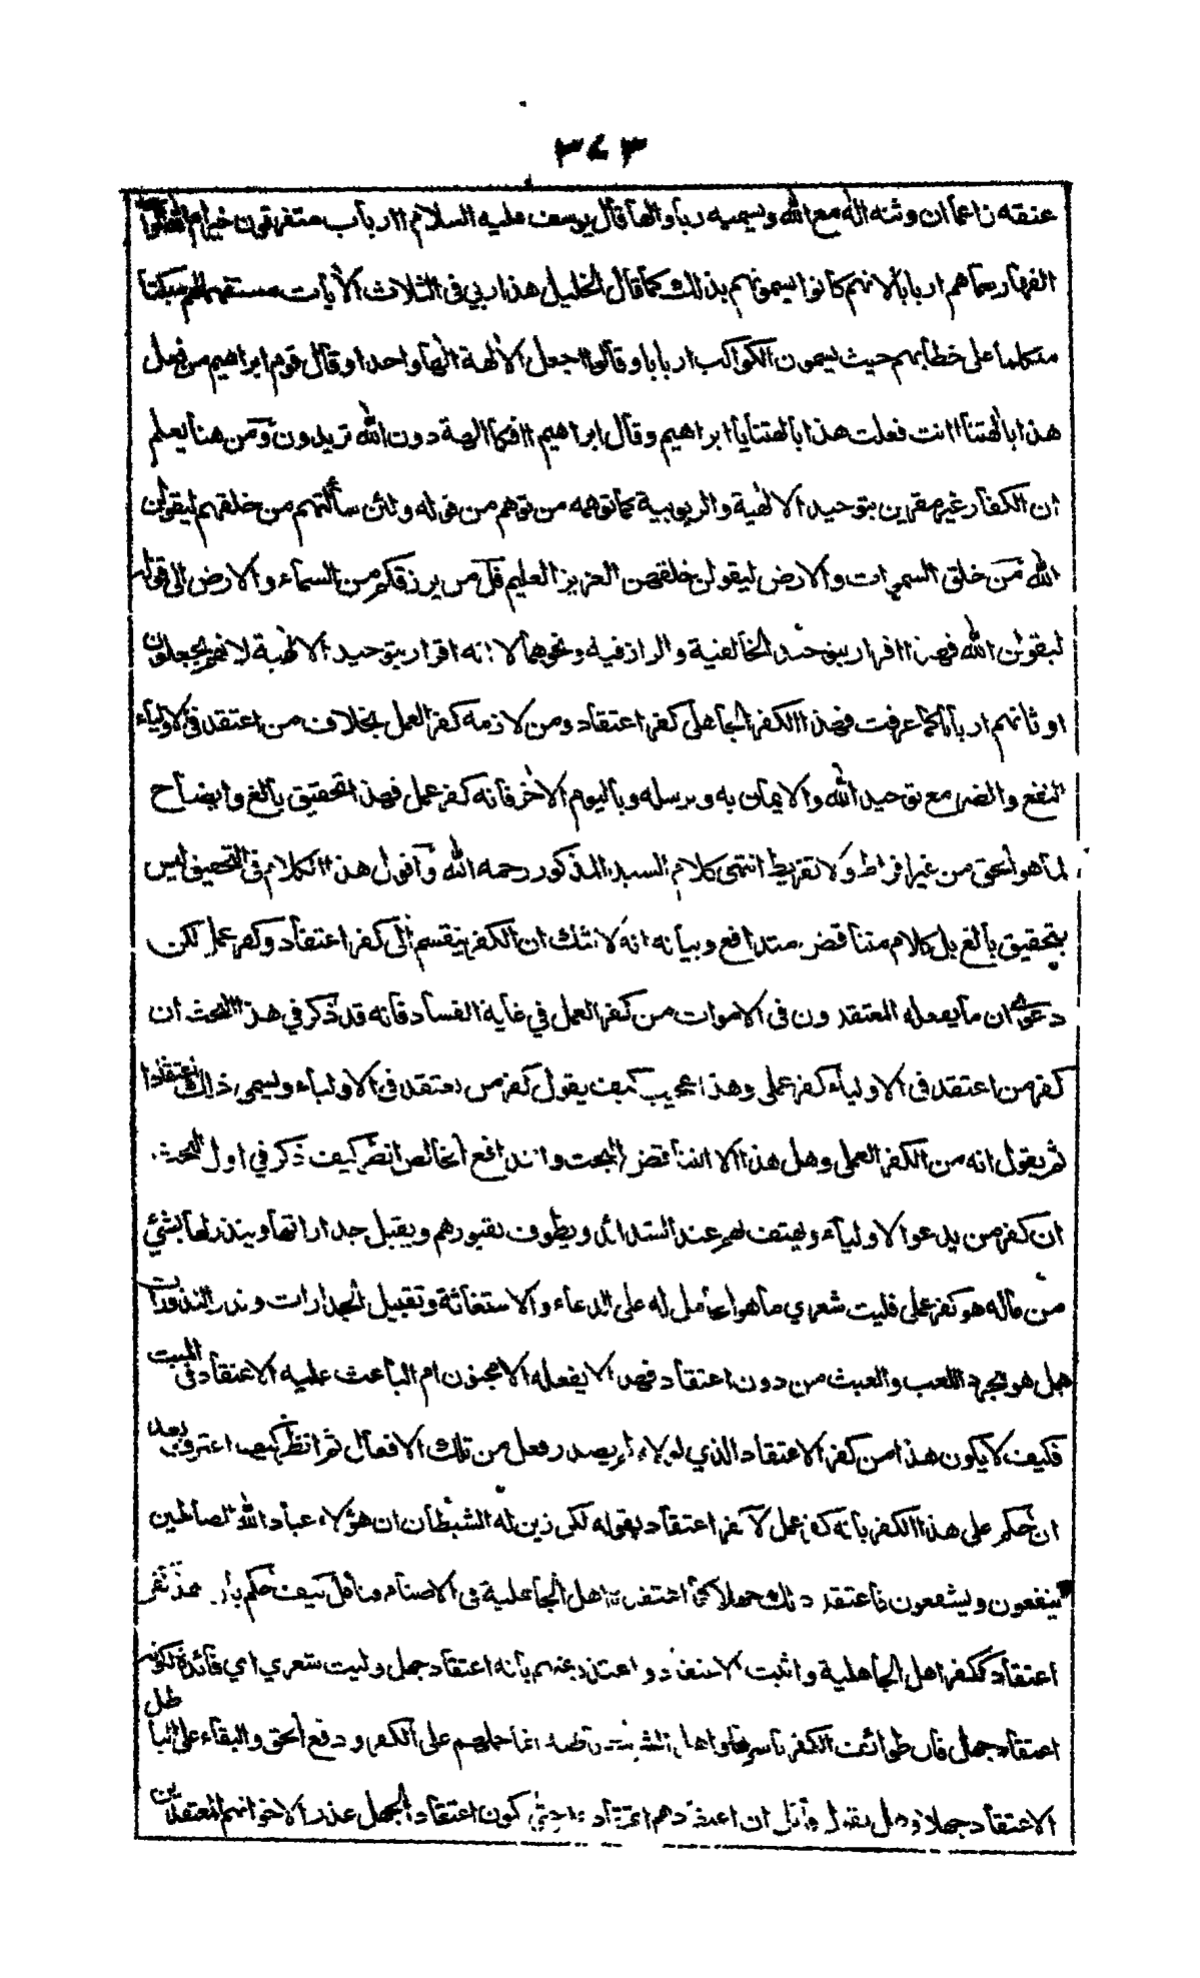 ٣٧٣
عنقه زاعما ان وثنه اله مع الله ويسميه ربا والها قال يوسف عليه السلام اارباب متفرقون خير ام الله الواحد
القهار سماهم اربابا لانهم كانوا يسمونهم بذلك كما قال الخليل هذا ربي فى الثلاث الأيات مستفهما لهم مبكتا
متكلما على خطابهم حيث يسمون الكواكب اربابا وقالوا اجعل الألهة الها واحدا وقال قوم ابراهيم من فعل
هذا بالهتنا اانت فعلت هذا بالهتنا يا ابراهيم وقال ابراهيم اافكا الهة دون الله تريدون ومن هنا يعلم
ان الكفار غير مقرين بتوحيد الالهية والربوبية كما توهمه من توهم من قوله ولئن سألتهم من خلقهم ليقولن
الله من خلق السموات والارض ليقولن خلقهن العزيز العليم قل من يرزقكم من السماء والارض الى قوله
ليقولن الله فهذا اقرار بتوحيد الخالقية والرازقية ونحوهما لا انه اقرار بتوحيد الالهية لانهم يجعلون
اوثانهم اربابا كما عرفت فهذا الكفر الجاهلى كفر اعتقاد ومن لازمه كفر العمل بخلاف من اعتقد فى الاولياء
النفع والضر مع توحيد الله والايمان به وبرسله وباليوم الأخر فانه كفر عمل فهذا تحقيق بالغ وايضاح
لما هو الحق من غير افراط ولا تفريط انتهى كلام السيد المذكور رحمه الله واقول هذا الكلام فى التحقيق ليس
بتحقيق بالغ بل كلام متناقض متدافع وبيانه انه لا شك ان الكفر ينقسم الى كفر اعتقاد وكفر عمل لكن
دعوى ان ما يفعله المعتقدون فى الاموات من كفر العمل في غاية الفساد فانه قد ذكر في هذا البحث ان
كفر من اعتقد فى الاولياء كفر عملى وهذا عجيب كيف يقول كفر من يعتقد فى الاولياء ويسمى ذلك اعتقادا
ثم يقول انه من الكفر العملى وهل هذا الا التناقض البحت والتدافع الخالص انظر كيف ذكر في اول البحث
ان كفر من يدعوا الاولياء ويهتف بهم عند الشدائد ويطوف بقبورهم ويقبل جداراتها وينذر لها بشئ
من ماله هو كفر عملى فليت شعري ما هو الحامل له على الدعاء والاستغاثة وتقبيل الجدارات ونذر النذورات
هل هو مجرد اللعب والعبث من دون اعتقاد فهذا لا يفعله الا مجنون ام الباعث عليه الاعتقاد فى الميت
فكيف لا يكون هذا من كفر الاعتقاد الذي لولاه لم يصدر فعل من تلك الافعال ثم انظر كيف اعترف بعد
ان حكم على هذا الكفر بانه كفر عمل لا كفر اعتقاد بقوله لكن زين له الشيطان ان هؤلاء عباد الله الصالحين
ينفعون ويشفعون فاعتقد ذلك جهلا كما اعتقده اهل الجاهلية فى الاصنام فتأمل كيف حكم بان هذا كفر
اعتقاد ككفر اهل الجاهلية واثبت الاعتقاد واعتذر عنهم بانه اعتقاد جهل وليت شعري اي فائدة لكونه
اعتقاد جهل فان طوائف الكفر باسرها واهل الشرك قاطبة انما حملهم على الكفر ودفع الحق والبقاء على الباطل
الاعتقاد جهلا وهل يقول قائل ان اعتقادهم اعتقاد علم حتى يكون اعتقاد الجهل عذر الاخوانهم المعتقدين